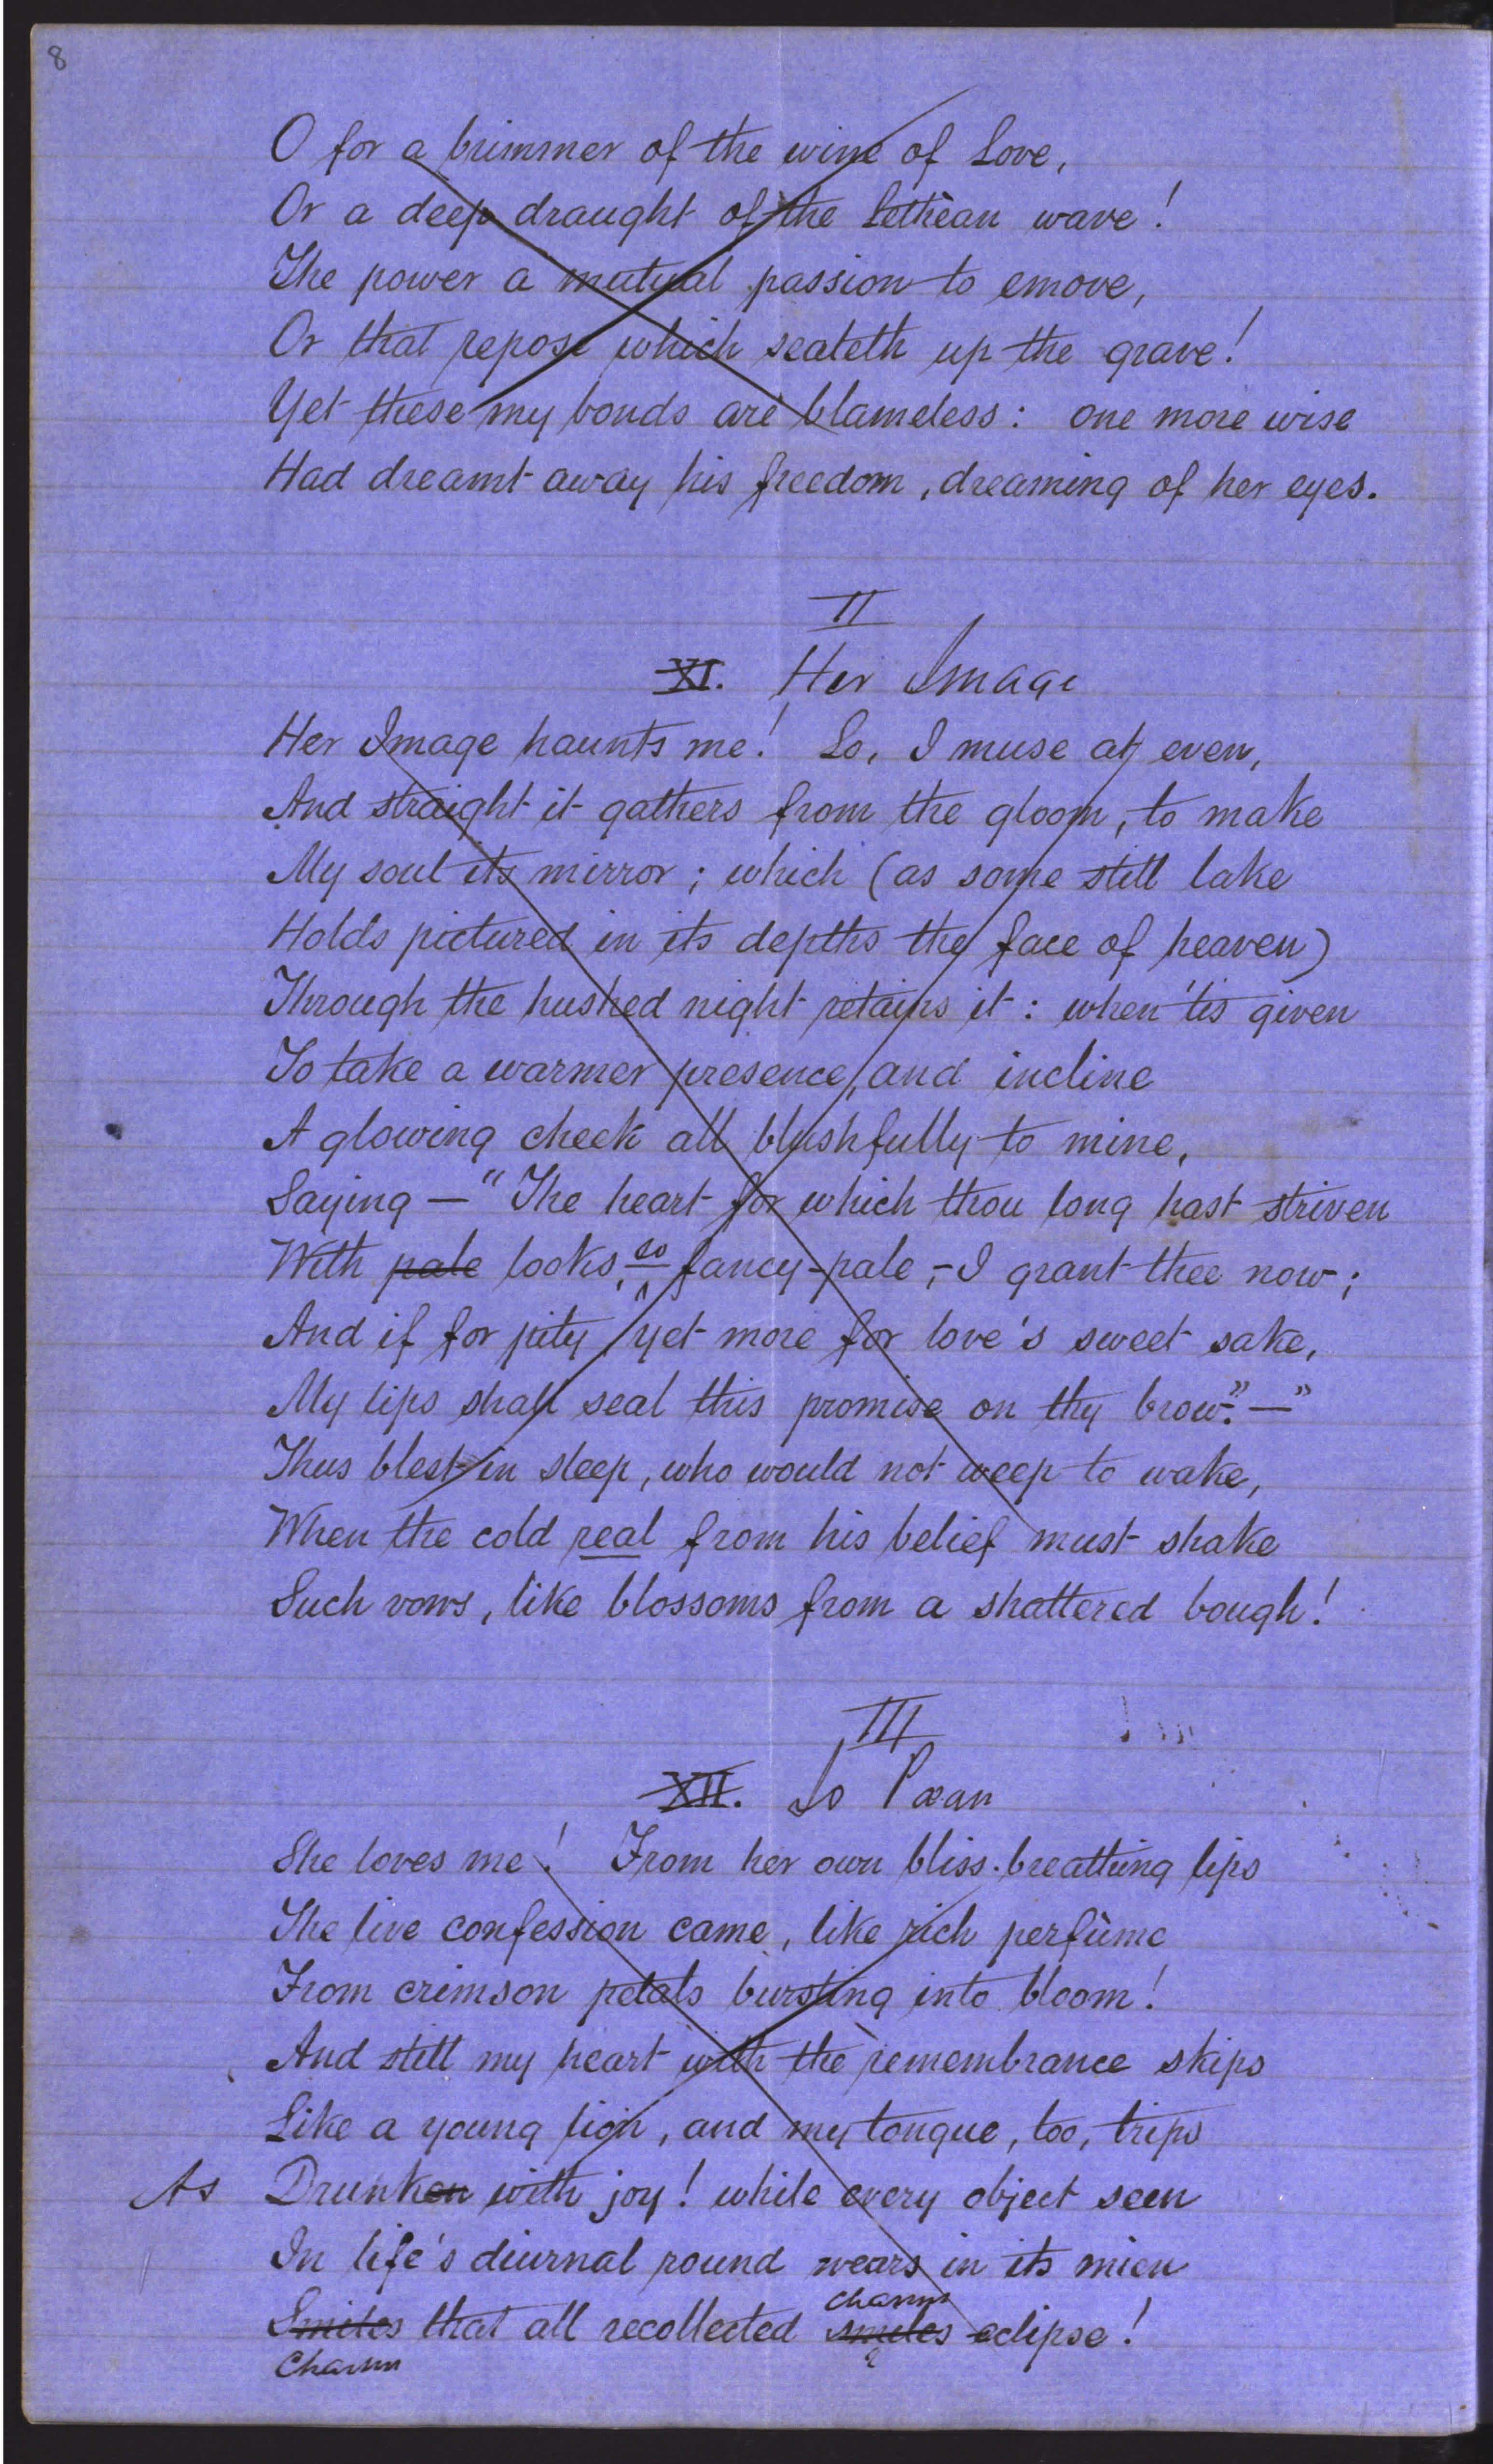 8
O for a brimmer of the wine of Love,
Or a deep draught of the Lethèan wave!
The power a mutual passion to emove,
Or that repose which sealeth up the grave!
Yet these my bonds are blameless: one more wise
Had dreamt away his freedom, dreaming of her eyes.
II
XI. Her Image
Her Image haunts me! Lo, I muse at even,
And straight it gathers from the gloom, to make
My soul its mirror; which (as some still lake
Holds pictured in its depths the face of heaven)
Through the hushed night retains it: when 'tis given
To take a warmer presence, and incline
A glowing cheek all blushfully to mine,
Saying — "The heart for which thou long hast striven
With pale looks, so fancy-pale,—I grant thee now;
And if for pity, yet more for love's sweet sake,
My lips shall seal this promise on thy brow." —"
Thus blest in sleep, who would not weep to wake,
When the cold real from his belief must shake
Such vows, like blossoms from a shattered bough!
III
XII. Io Pæan
She loves me! From her own bliss-breathing lips
The live confession came, like rich perfùme
From crimson petals bursting into bloom!
And still my heart with the remembrance skips
Like a young lion, and my tongue, too, trips
As Drunken with joy! while every object seen
In life's diurnal round wears in its mien
charms
Smiles that all recollected smiles eclipse!
Charms